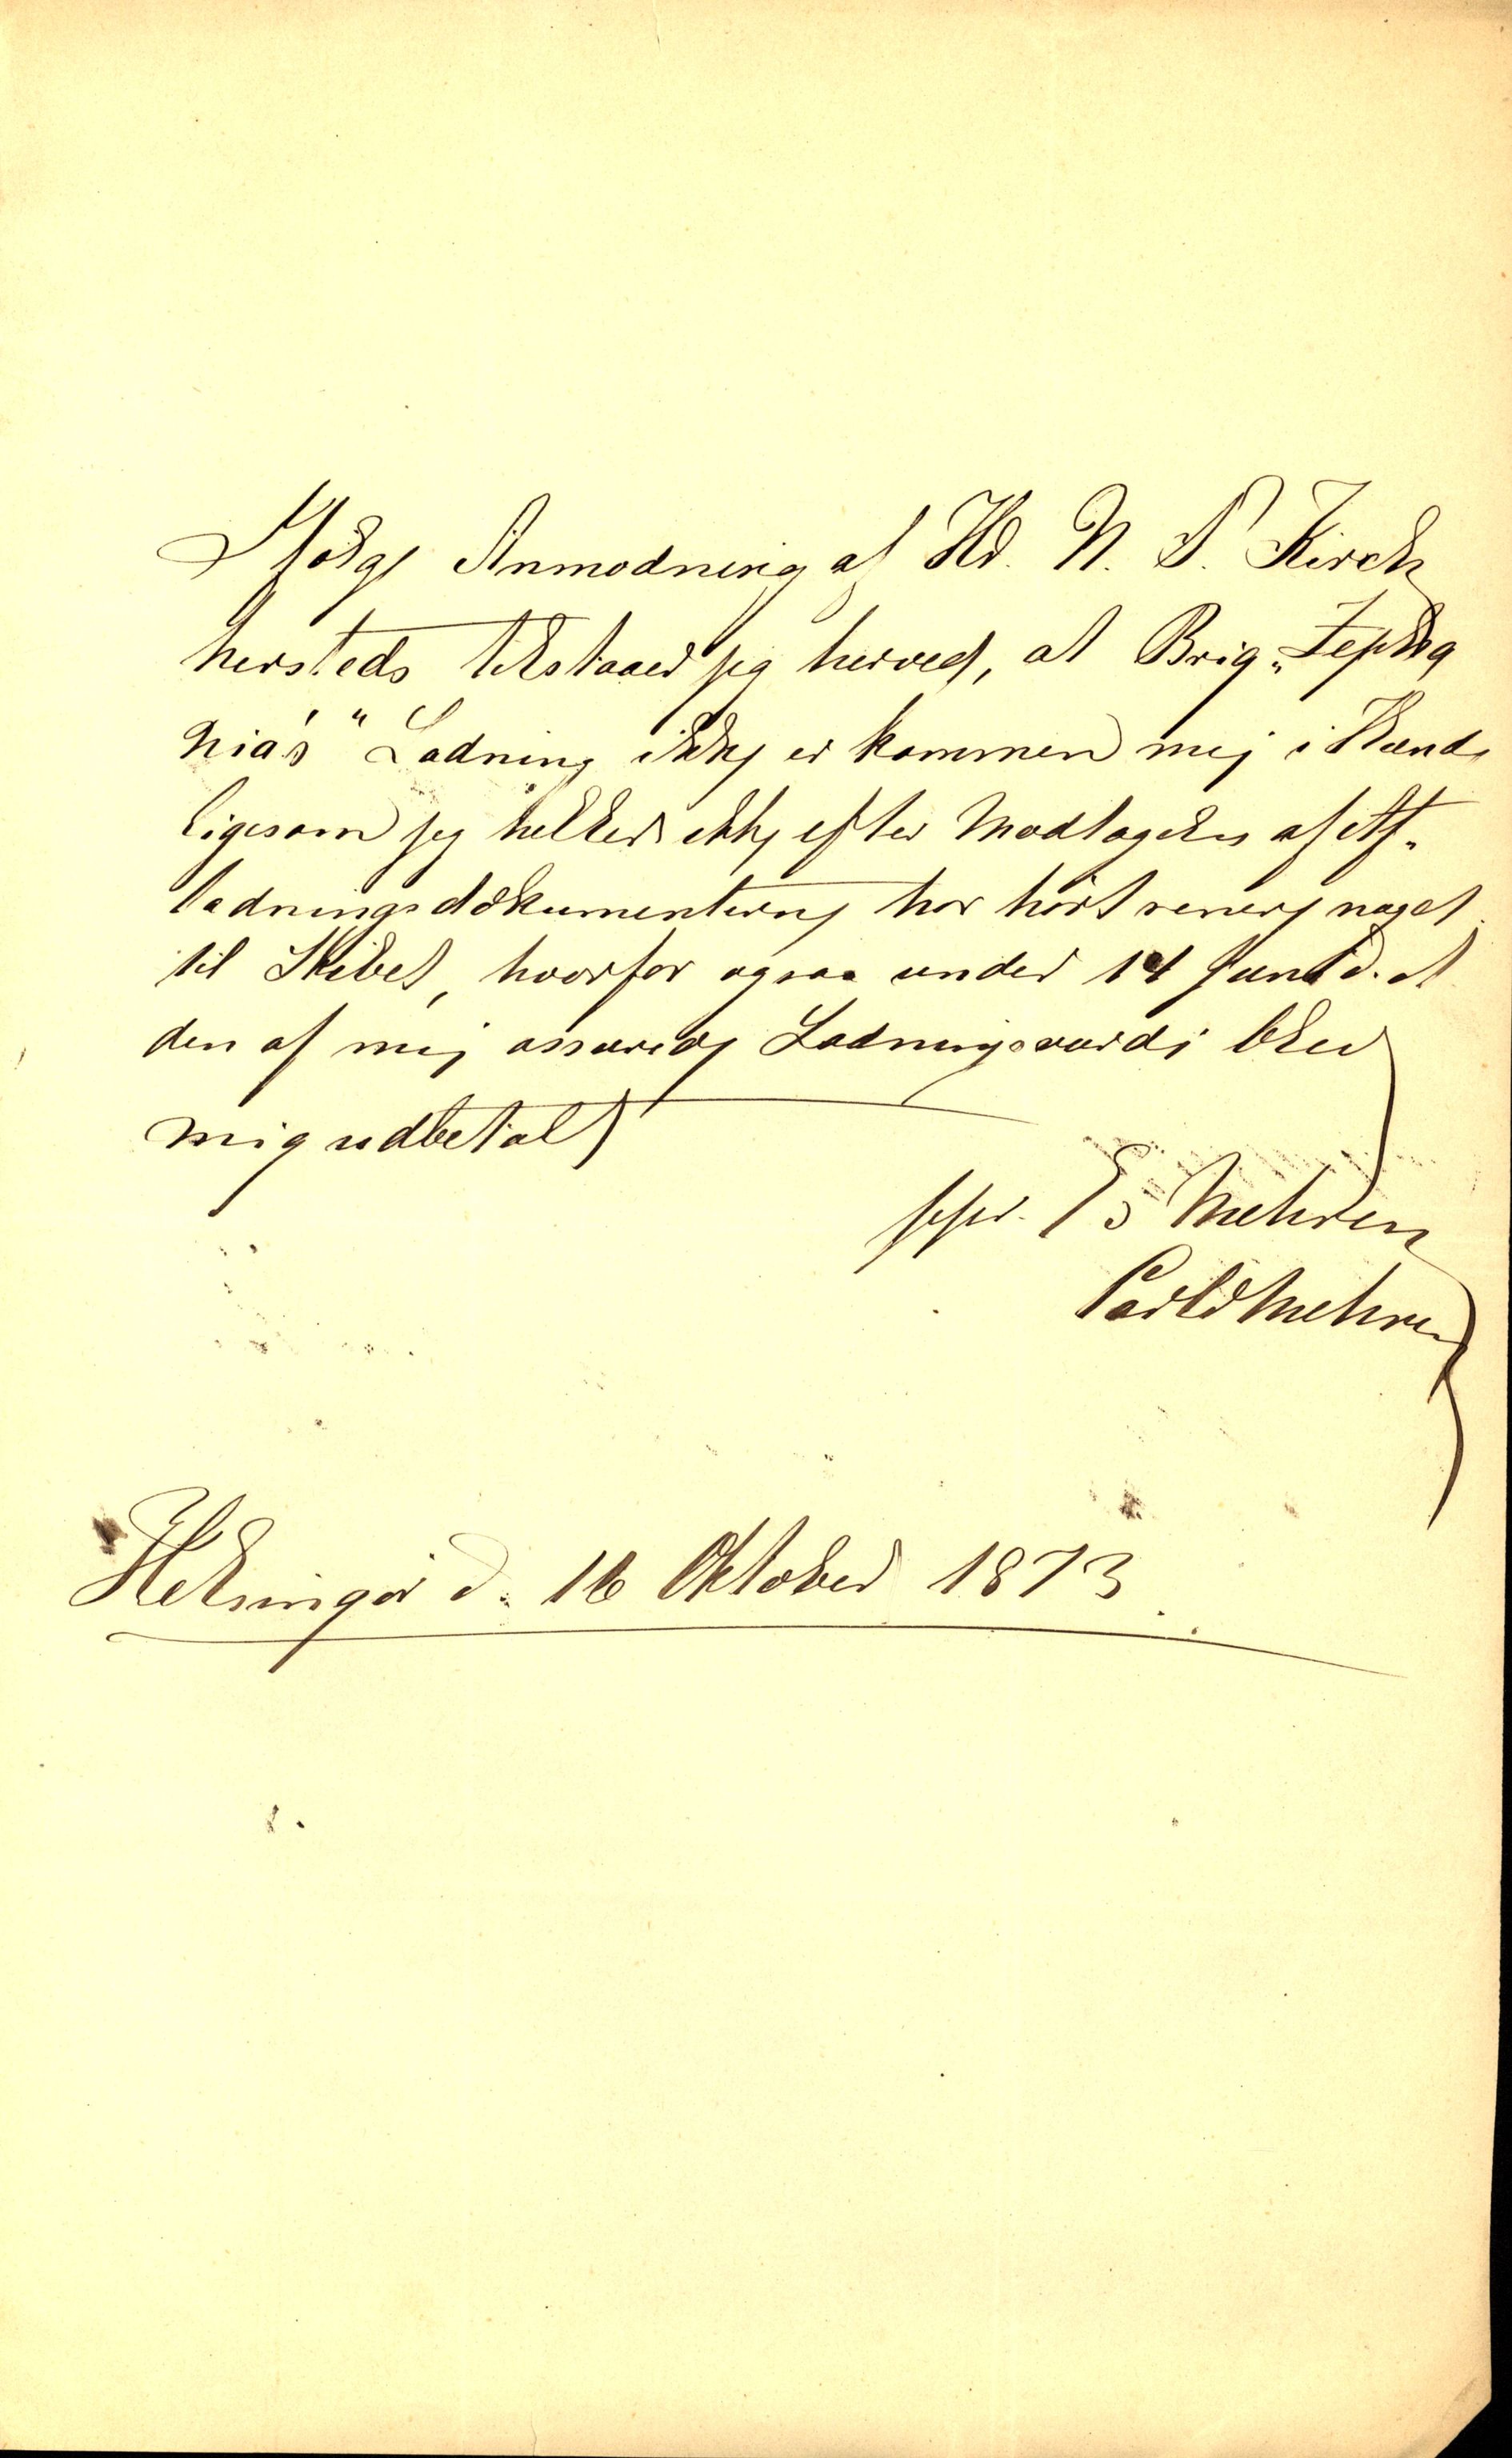 Ifølge Anmodning af Hr. N. P. Kirck
hersteds tilstaaer jeg herved, at Brig „Zephÿ
nia's" Ladning ikke er kommen mig i Hænde
ligesom jeg heller ikke efter Modtagelsen af Af-
ladningsdokumenterne har hørt senere noget
til Skibet, hvorfor ogsaa under 14 Juni d. A
den af mig assurerede Ladningsværdi blev
mig udbetalt
pper. Mehren
Mehren
Helsingør d. 16 Oktober 1873.